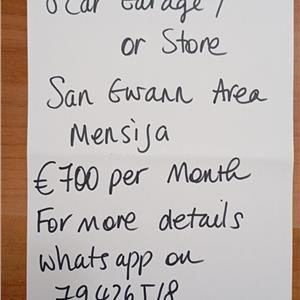 Car Garage /
or Store
San Gwann Area
Mensija
€700 per Month
For more details
whatsapp on